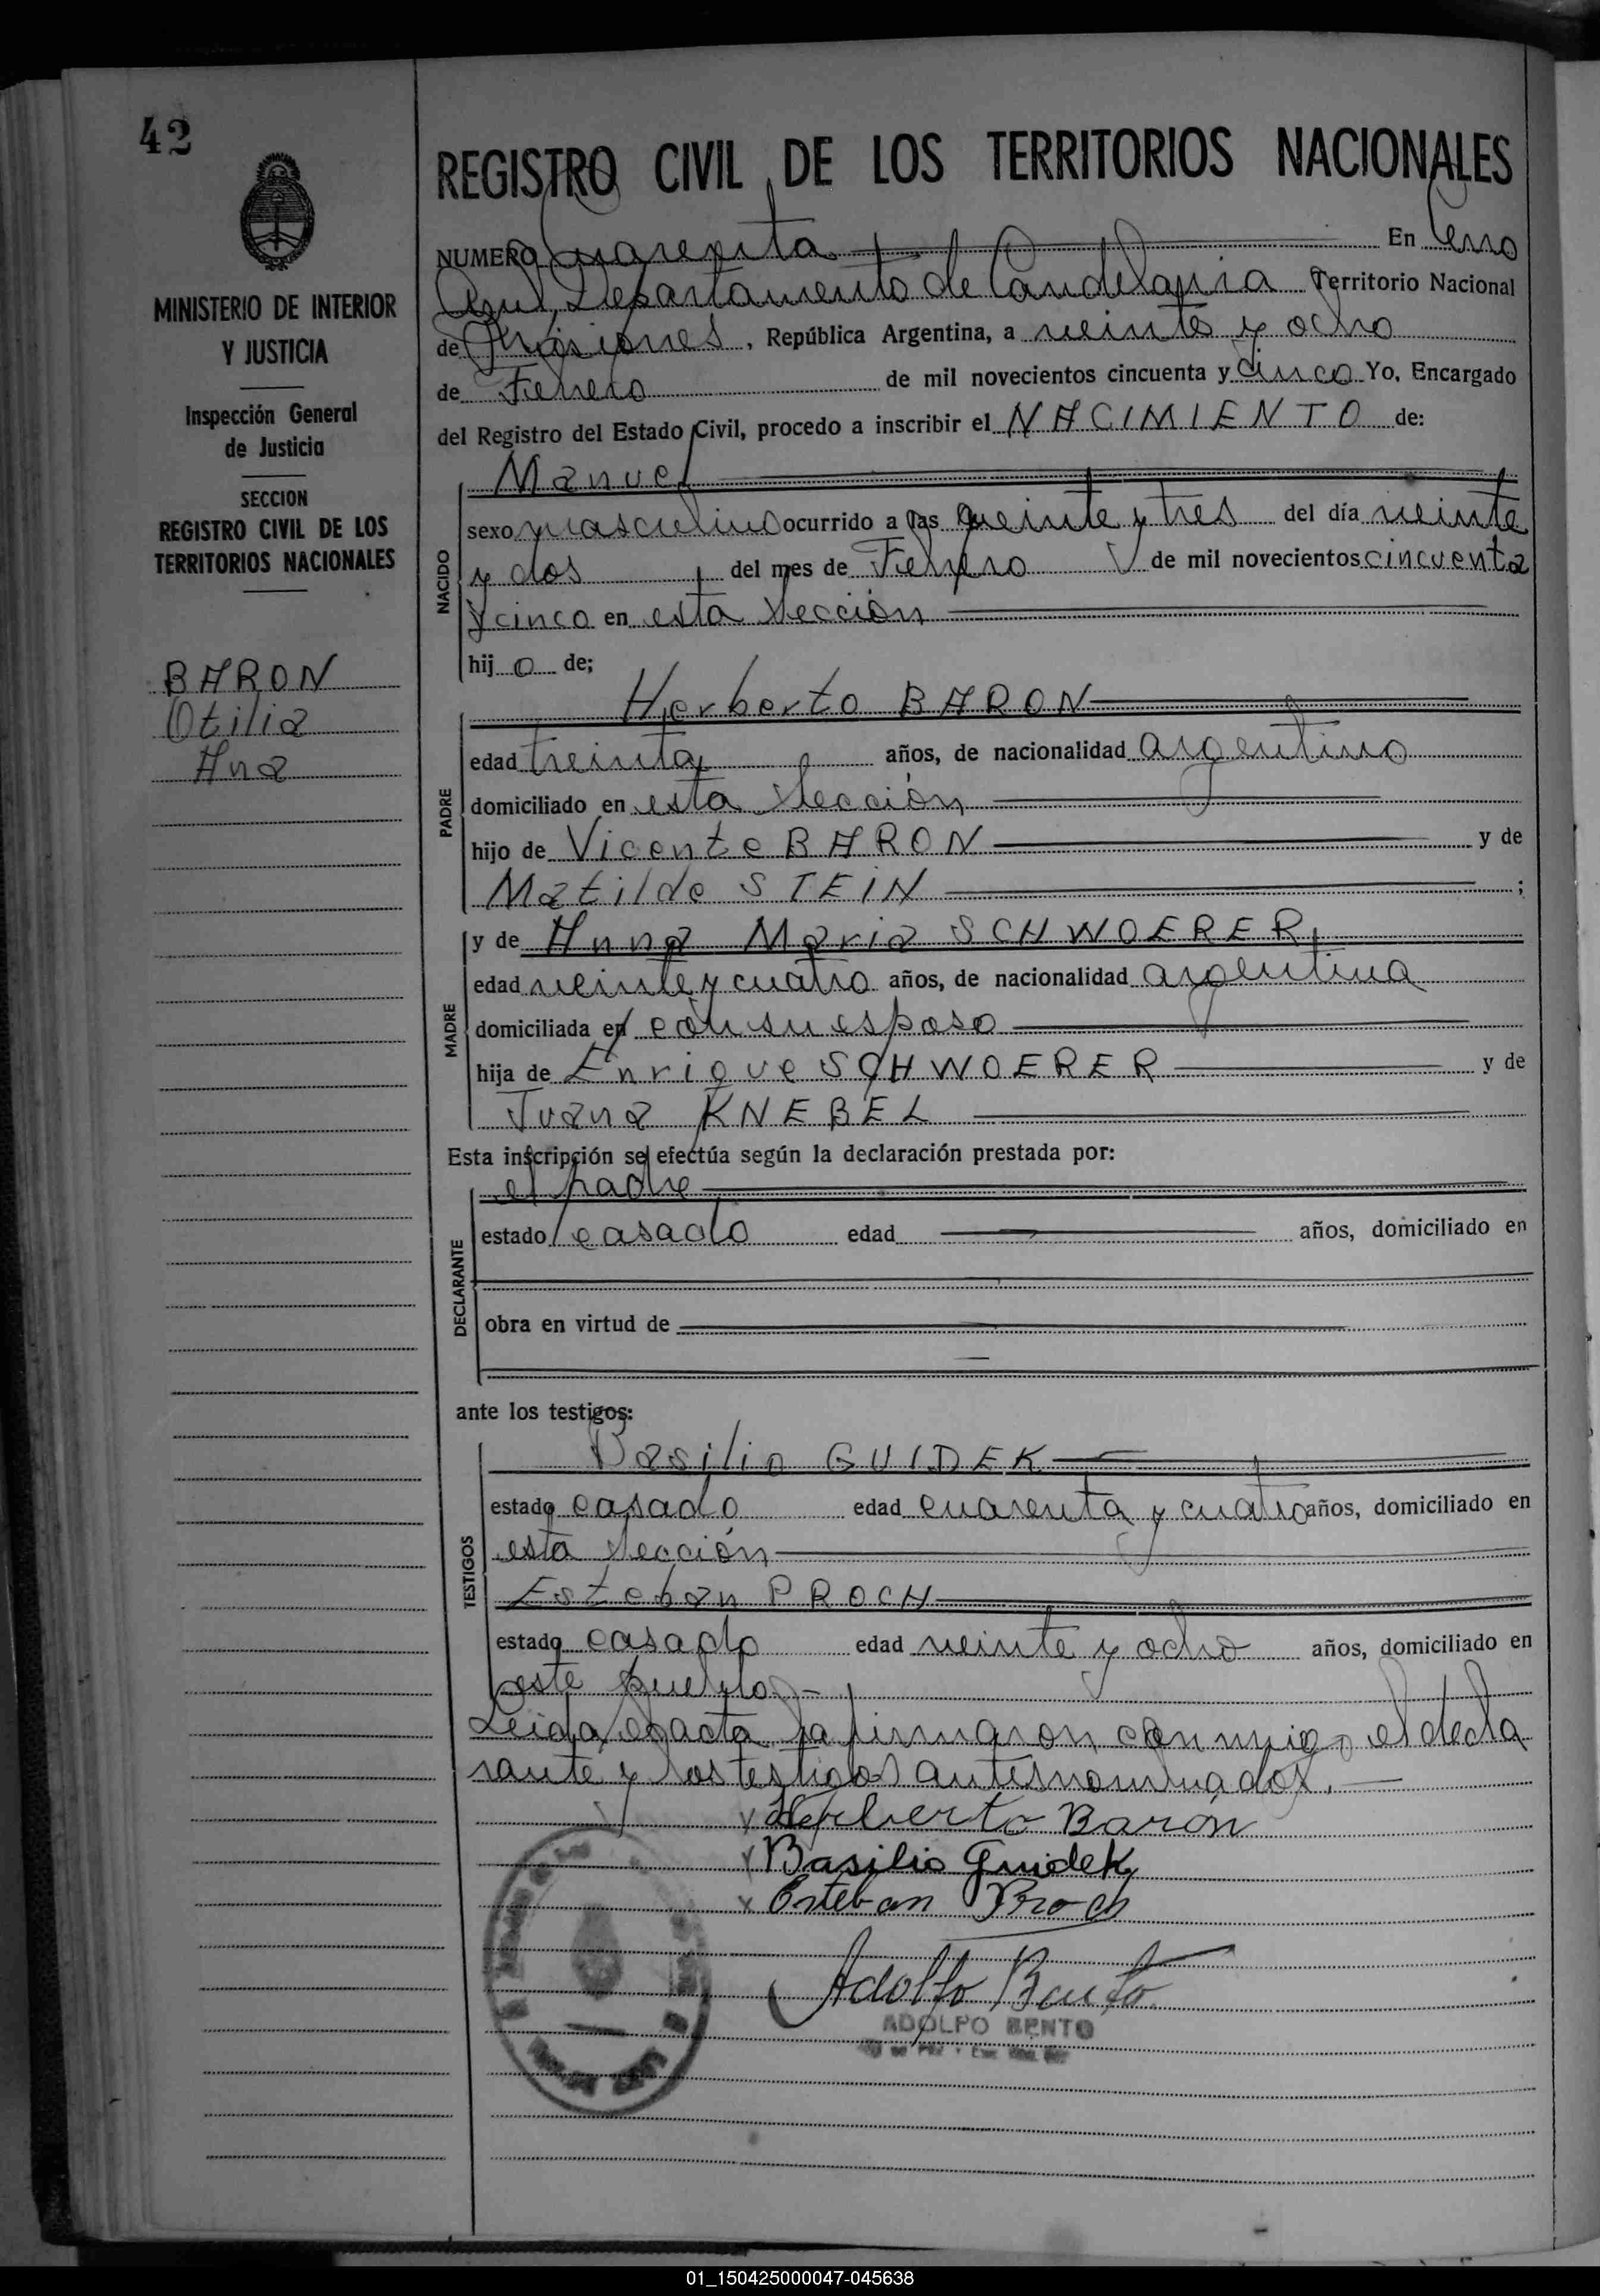 42
MINISTERIO DE INTERIOR
Y JUSTICIA
Inspección General
de Justicia
SECCION
REGISTRO CIVIL DE LOS
TERRITORIOS NACIONALES
BARON
Otilia
Ana
REGISTRO CIVIL DE LOS TERRITORIOS NACIONALES
NUMERO Cuarenta En Cerro
Azul, Departamento de Candelaria Territorio Nacional
de Misiones, República Argentina, a veinte y ocho
de Febrero de mil novecientos cincuenta y cinco Yo, Encargado
del Registro del Estado Civil, procedo a inscribir el NACIMIENTO de:
NACIDO
Manuel
sexo masculino ocurrido a las veinte y tres del día veinte
y dos del mes de Febrero de mil novecientos cincuenta
y cinco en esta Sección
hijo de;
PADRE
Herberto BARON
edad treinta años, de nacionalidad argentino
domiciliado en esta Sección
hijo de Vicente BARON y de
Matilde STEIN ;
MADRE
y de Anna Maria SCHWOERER,
edad veinte y cuatro años, de nacionalidad argentina
domiciliada en con su esposo
hija de Enrique SCHWOERER y de
Juana KNEBEL
Esta inscripción se efectúa según la declaración prestada por:
DECLARANTE
el padre
estado casado edad años, domiciliado en
obra en virtud de
ante los testigos:
TESTIGOS
Basilio GUIDEK
estado casado edad cuarenta y cuatro años, domiciliado en
esta Sección
Esteban PROCH
estado casado edad veinte y ocho años, domiciliado en
este pueblo.-
Leida el acta la firmaron conmigo el decla
rante y los testigos antesnombrados.
x Herberto Barón
x Basilio Guidek
x Esteban Proch
Adolfo Bento
ADOLFO BENTO
01_150425000047-045638